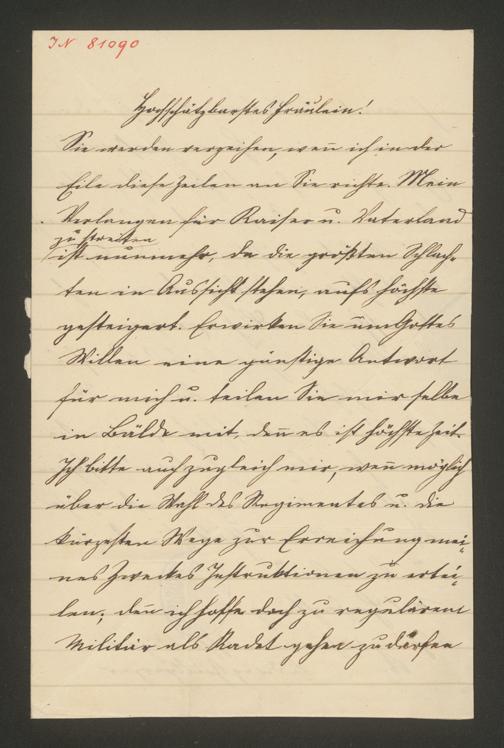 IN 81090
Hochschätzbarstes Fräulein!
Sie werden verzeihen, wen̄ ich in der
Eile diese Zeilen an Sie richte. Mein
Verlangen für Kaiser u. Vaterland
zu streiten
ist nunmehr, da die größten Schlach-
ten in Aussicht stehen, aufs höchste
gesteigert. Erwirken Sie um Gottes
Willen eine günstige Antwort
für mich u. teilen Sie mir selbe
in Bälde mit, den̄ es ist höchste Zeit.
Ich bitte auch zugleich mir, wen̄ möglich
über die Wahl des Regimentes u. die
kürzesten Wege zur Erreichung mei-
nes Zweckes Instruktionen zu ertei-
len; den̄ ich hoffe doch zu regulärem
Militär als Kadet gehen zu dürfen